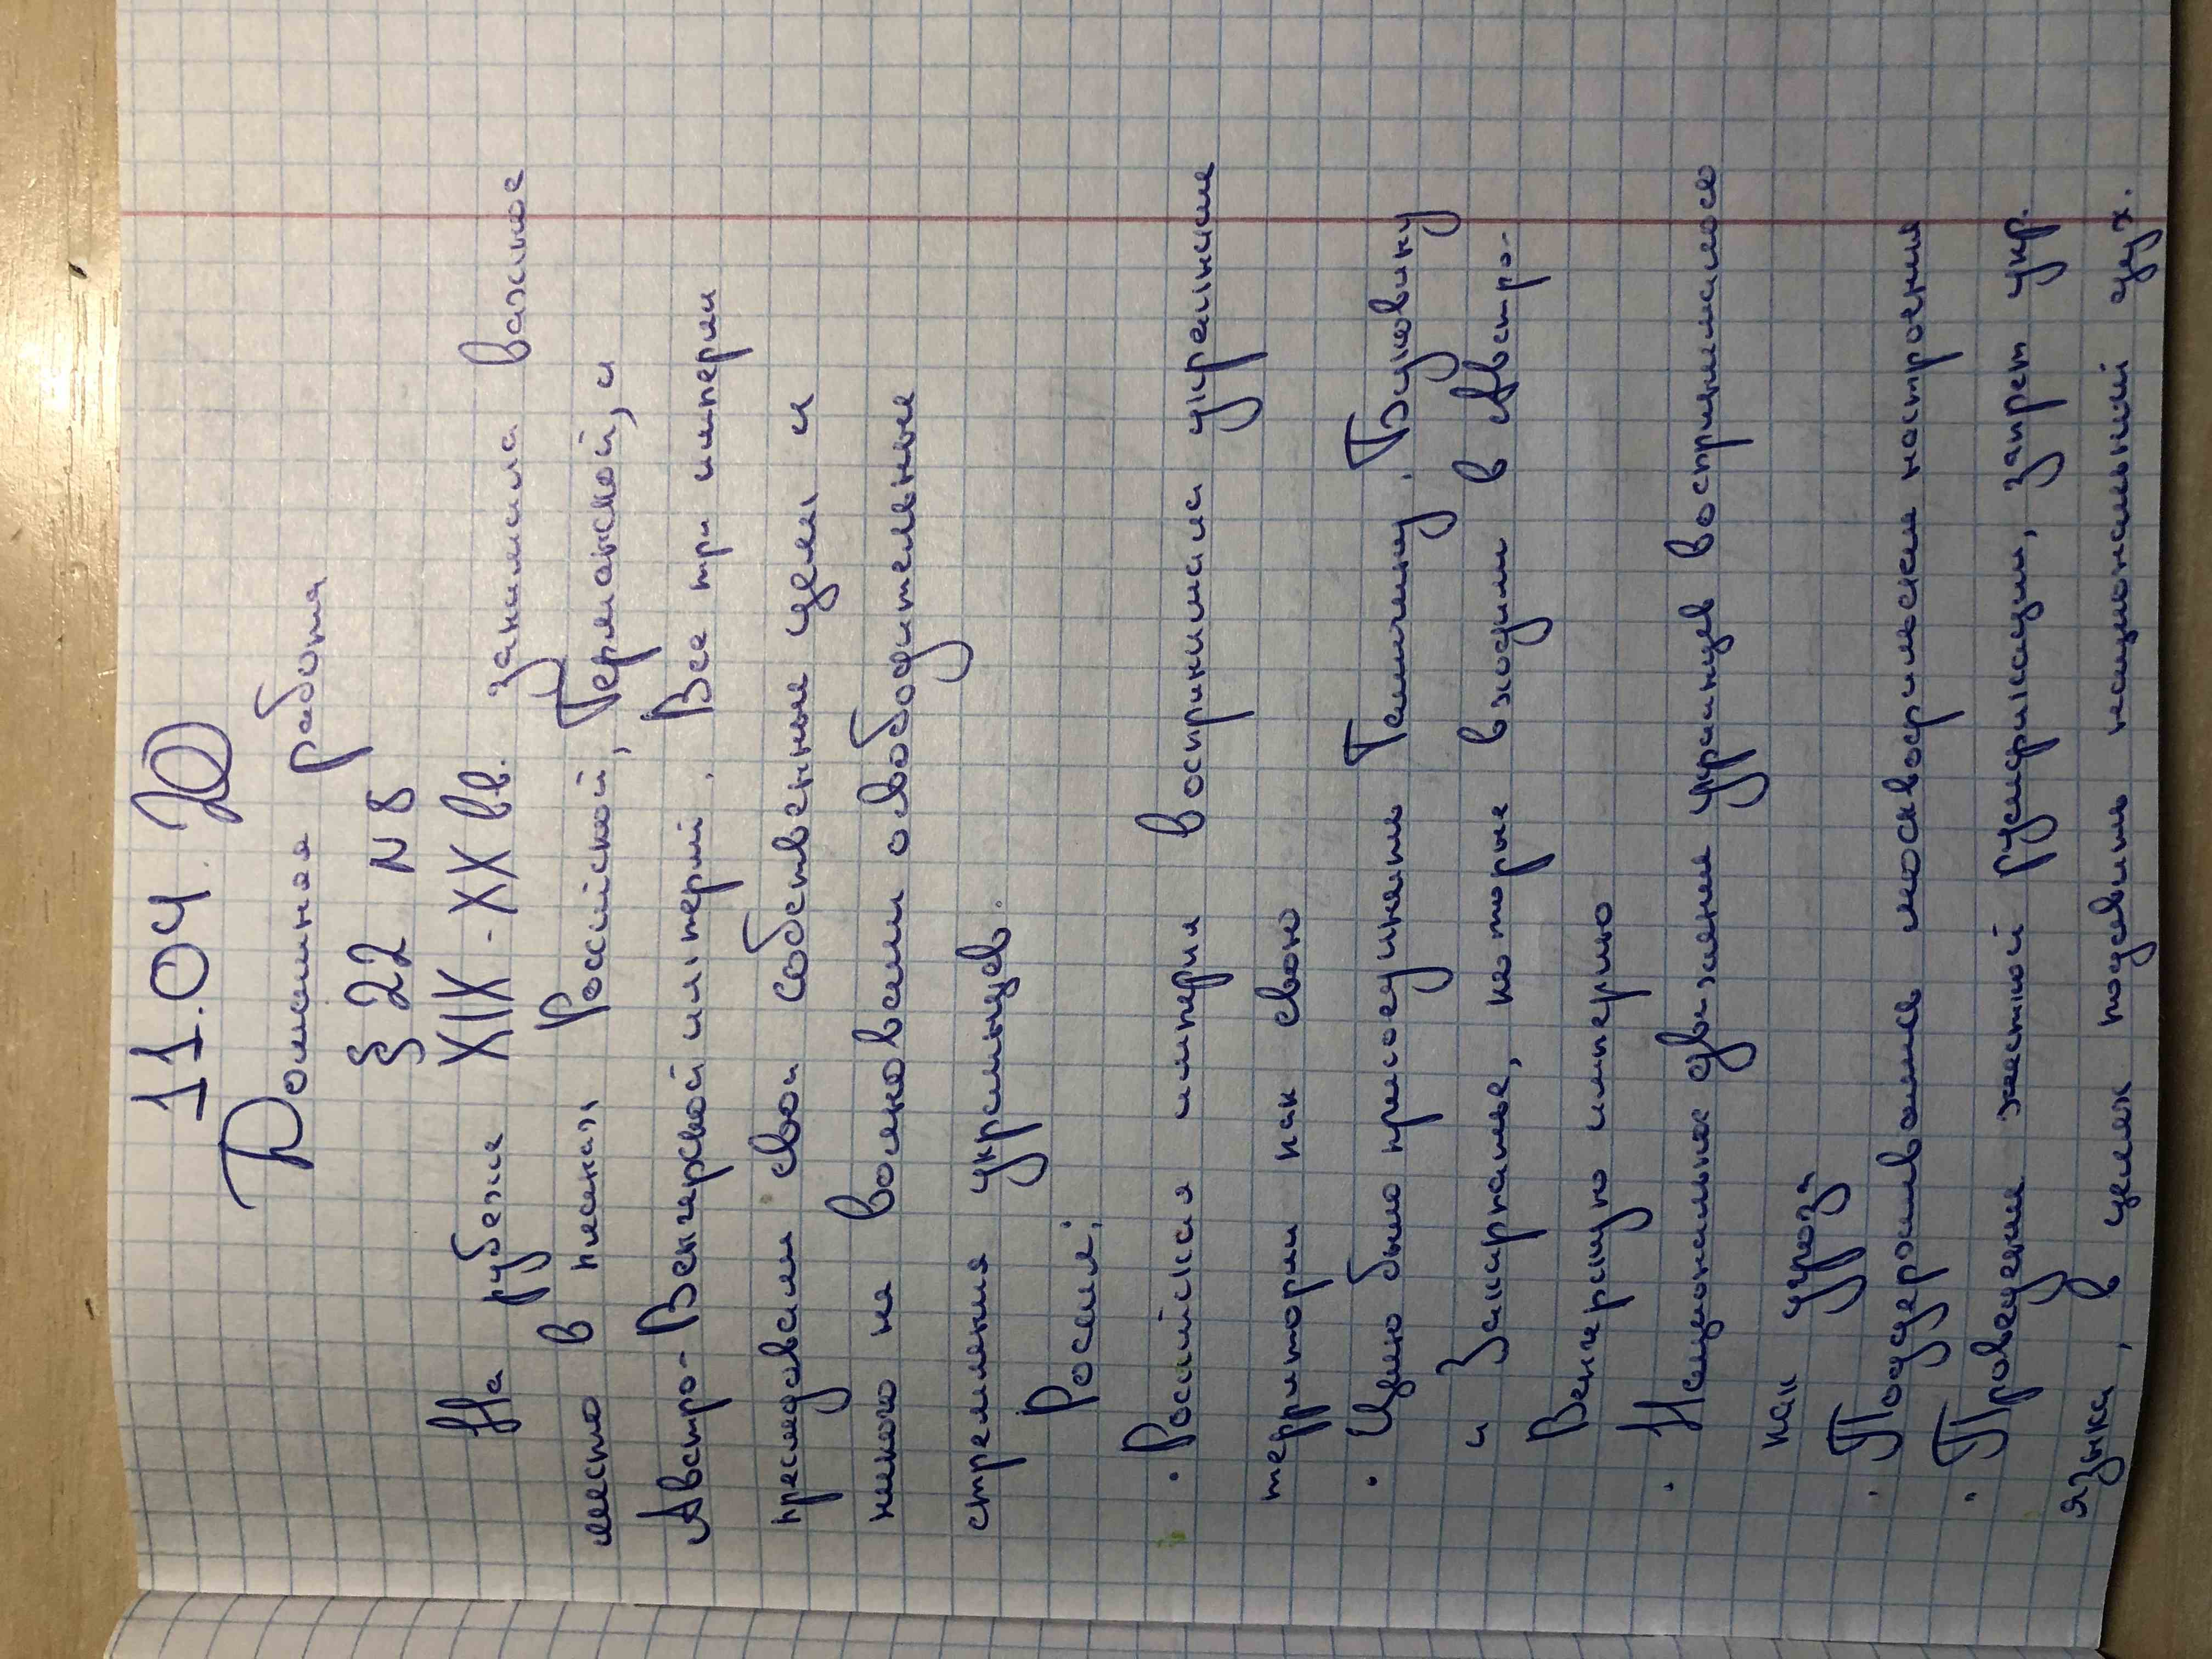 11.04.20
Домашняя работа
§ 22 N8
На рубеже XIX-XX вв. занимала важное
место в планах Россиской, Германской, и
Австро-Венгерской империй. Все три империи
преследовали свои собственные цели и
никого не волновали освободительные
стремления украинцев.
Россия:
· Российская империя воспринимала украинские
территории как свою
· Целью было присоединение Галичину, Буковину
и Закарпатье, которые входили в Австро-
Венгерскую империю
· Национальное движение украинцев воспринималось
как угроза
· Поддерживались москвофильские настроения
· Проведении жесткой русификации, запрет укр.
языка, в целях подавить национальний дух.